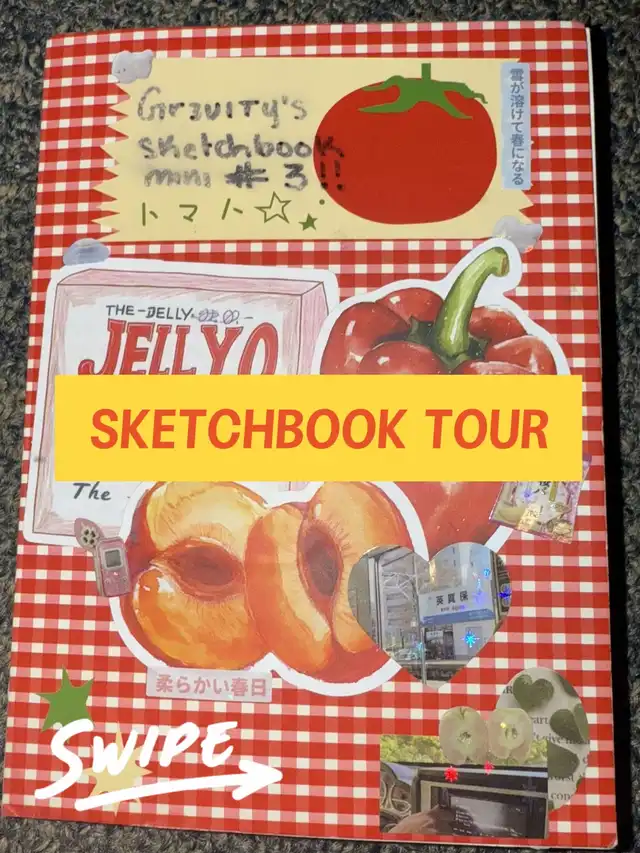 Gravity's
sketchbook
mini # 3!!
トマト☆
雪が溶けて春になる
THE-DELLY
JELLY O
SKETCHBOOK TOUR
The
英賀保
柔らかい春日
SWIPE